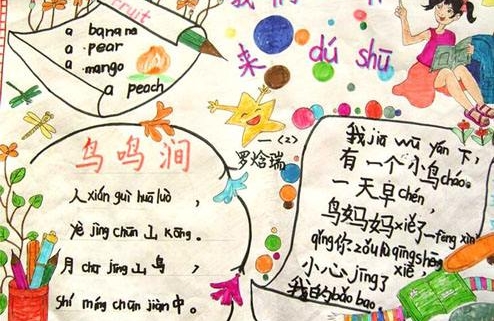 fruit
a banana
a pear
a mango
a peach
我们
来 dú shū
一(2)
罗焓瑞
鸟鸣涧
人xián guì huā luò，
yè jìng chūn 山 kōng。
月 chū jīng 山 鸟，
shí míng chūn jiàn 中。
我jiā wū yán 下，
有一个小鸟cháo。
一天早chén，
鸟妈妈xiě了一fēng xìn
qǐng你zǒu lù qīng shēng
xiē，
小心jīng了
我的bǎo bao。